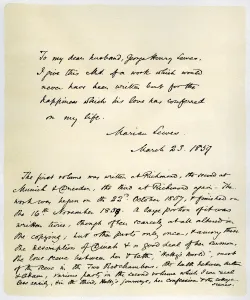 To my dear husband, George Henry Lewes,
I give this M.S. of a work which would
never have been written but for the
happiness which his love has conferred
on my life.
Marian Lewes
March 23. 1859
The first volume was written at Richmond, the second at
Munich & Dresden, the third at Richmond again. The
work was begun on the 22d October 1857, & finished on
the 16th November 1858. A large portion of it was
written twice, though often scarcely at all altered in
the copying; but other parts only once, & among these
the description of Dinah & a good deal of her sermon,
the love scene between her & Seth, "Hetty's world",
of the scene in the Two Bedchambers, the talk between
various parts in the second volume which I
in the third, Hetty's journeys, her confession & the